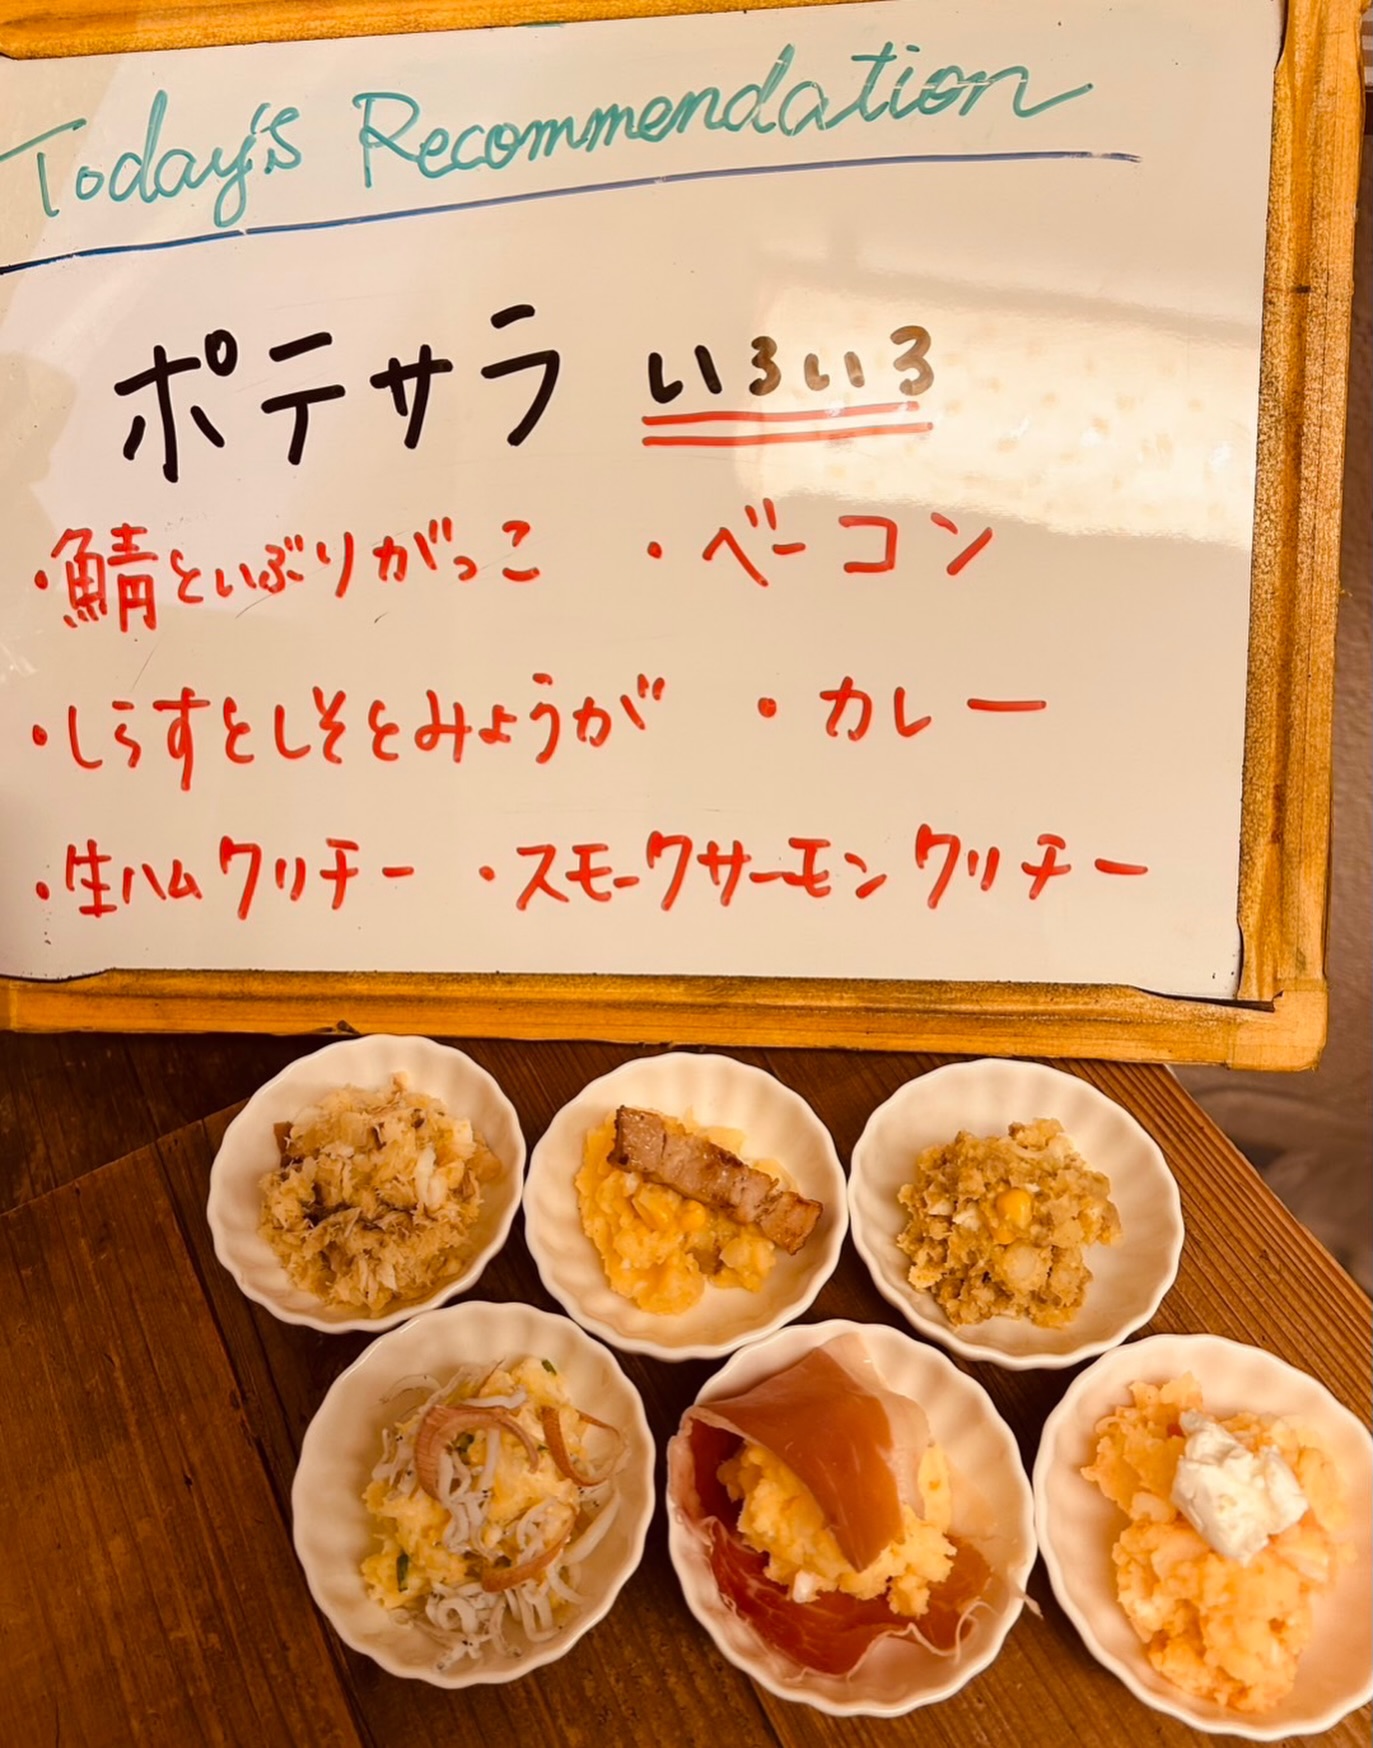 Today's Recommendation
ポテサラ いろいろ
・鯖といぶりがっこ ・ベーコン
・しらすとしそとみょうが ・カレー
・生ハムクリチー ・スモークサーモンクリチー